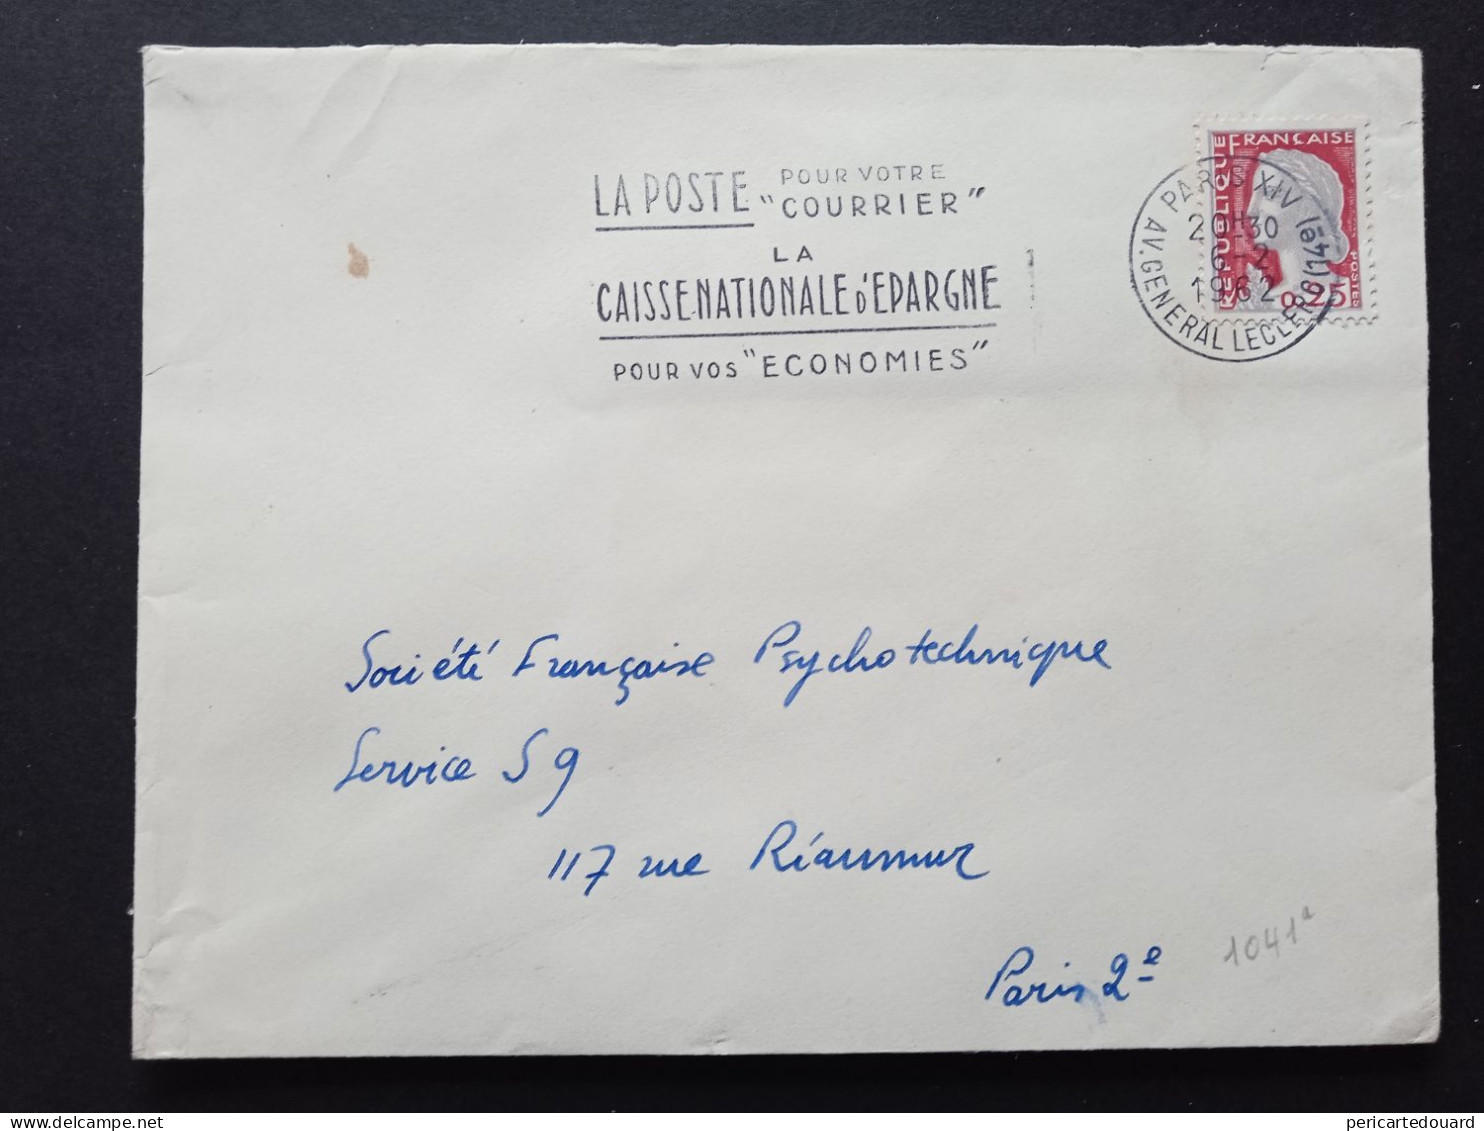 LA POSTE POUR VOTRE
"COURRIER"
LA
CAISSE NATIONALE d'EPARGNE
POUR VOS "ECONOMIES"
REPUBLIQUE FRANÇAISE
POSTES
0,25
PARIS XIV
20H30
6-2
1962
AV. GENERAL LECLERC (14e)
Société Française Psychotechnique
Service S9
117 rue Réaumur
Paris 2e
1041a
delcampe.net
pericartedouard